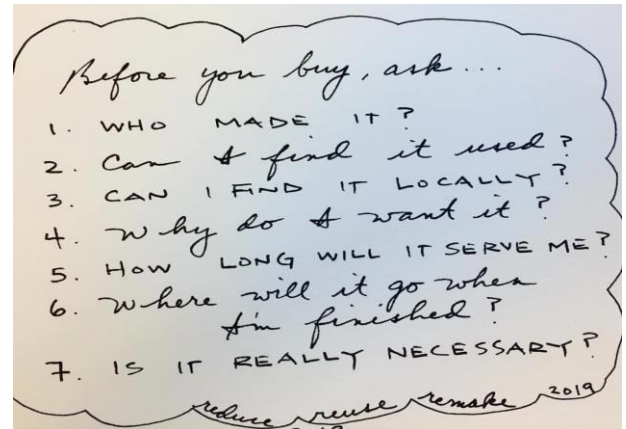 Before you buy, ask...
1. WHO MADE IT?
2. Can I find it used?
3. CAN I FIND IT LOCALLY?
4. Why do I want it?
5. HOW LONG WILL IT SERVE ME?
6. Where will it go when
I'm finished?
7. IS IT REALLY NECESSARY?
reduce reuse remake 2019